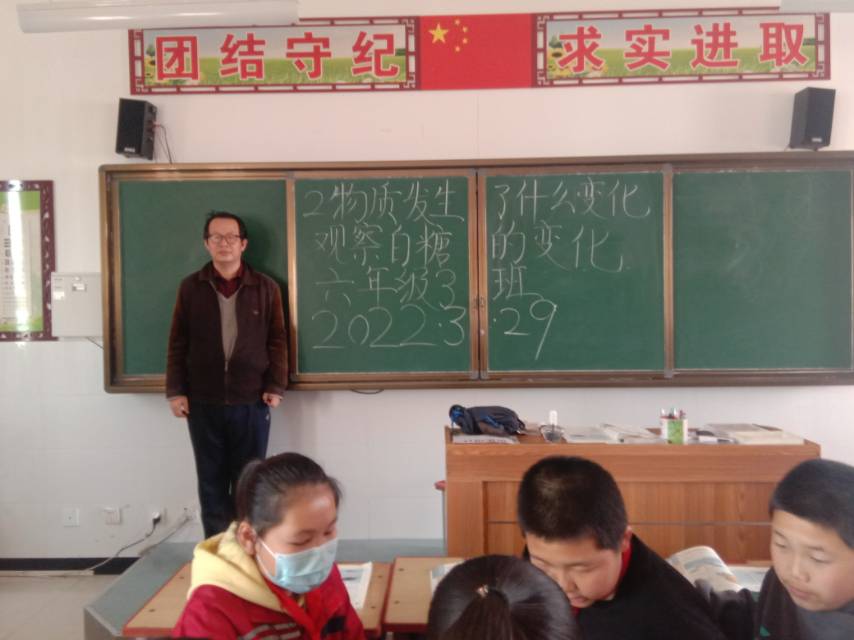 团结守纪
求实进取
2物质发生了什么变化
观察白糖的变化
六年级3班
2022.3.29